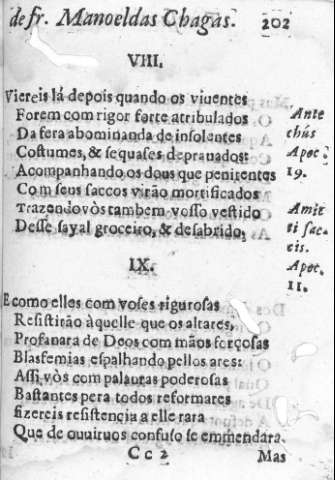 de fr. Manoel das Chagas. 202
VIII.
Viereis lá depois quando os viuentes
Forem com rigor forte atribulados
Da fera abominanda de insolentes
Costumes, & sequases deprauados:
Acompanhando os dous que penitentes
Com seus saccos virão mortificados
Trazendo vòs tambem vosso vestido
Desse sayal groceiro, & desabrido,
Ante
chús
Apoc.
19.
Amic
ti sac-
cis.
Apoc,
11.
IX.
E como elles com voses rigurosas
Resistirão àquelle que os altares,
Profanara de Deos com mãos forçosas
Blasfemias espalhando pellos ares:
Assi vòs com palauras poderosas
Bastantes pera todos reformares
fizereis resistencia a elle rara
Que de ouuiruos confuso se emmendara.
Cc2 Mas